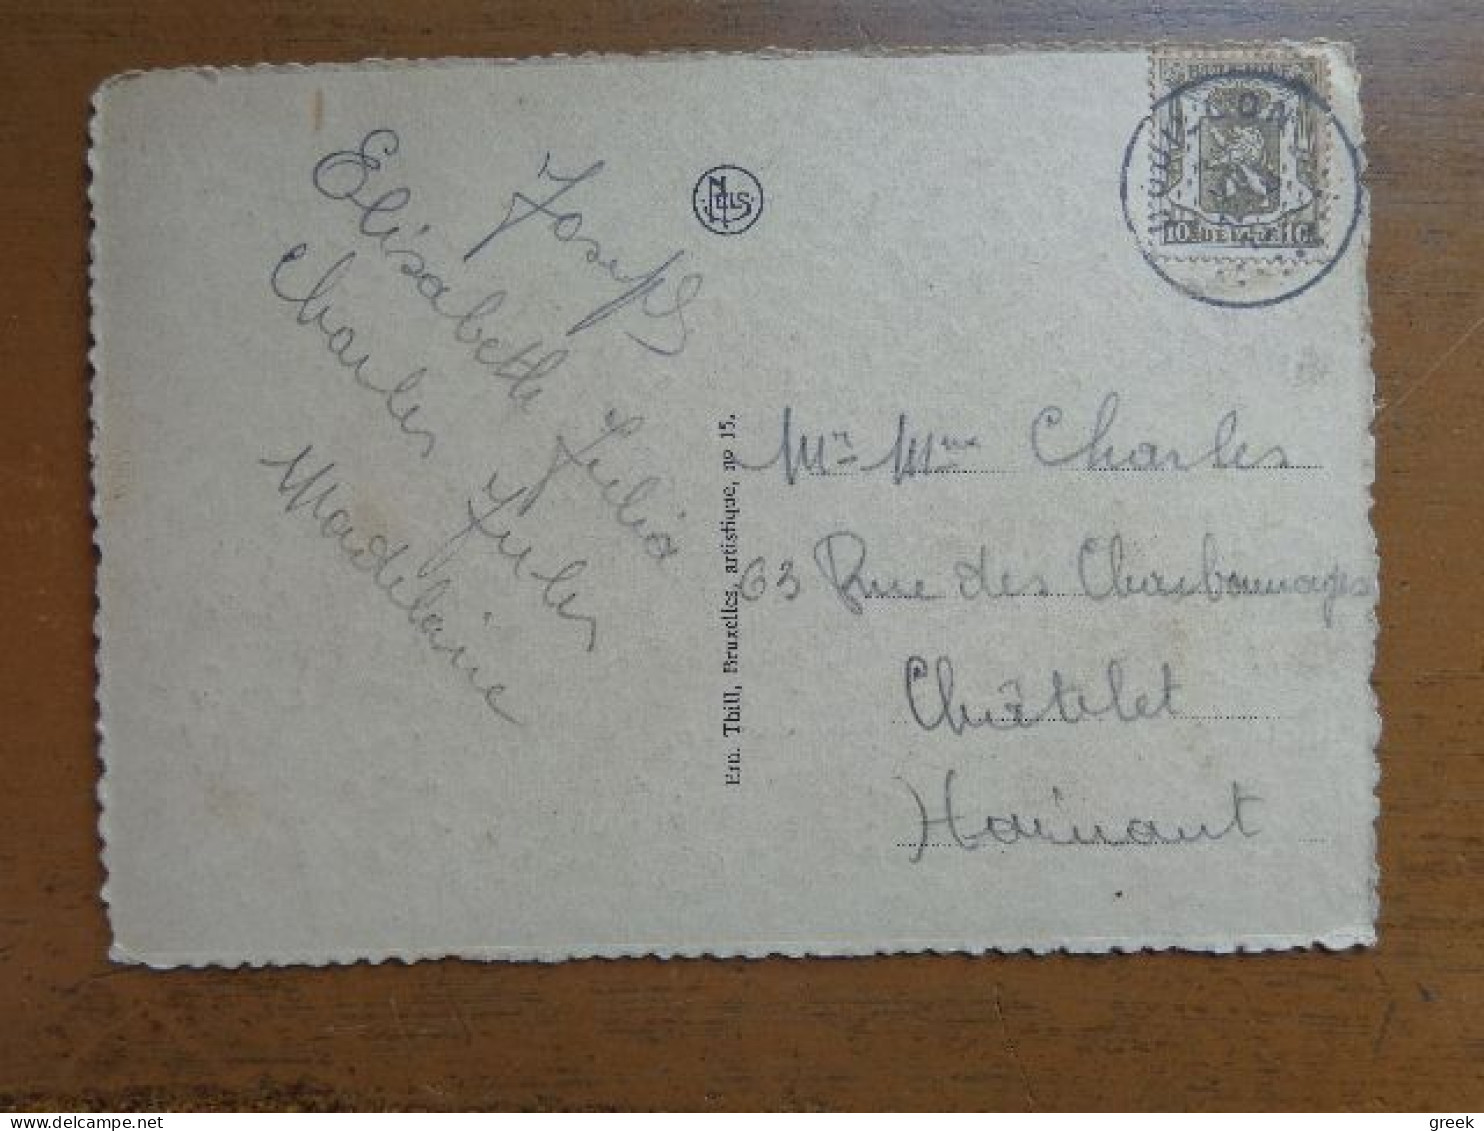 Joseph
Elisabeth Julia
Charles Jules
Madelaine
NELS
Ern. Thill, Bruxelles, artistique, no 15.
10 10
BOUILLON
Mr Mme Charles
63 Rue des Charbonnages
Châtelet
Hainaut
greek